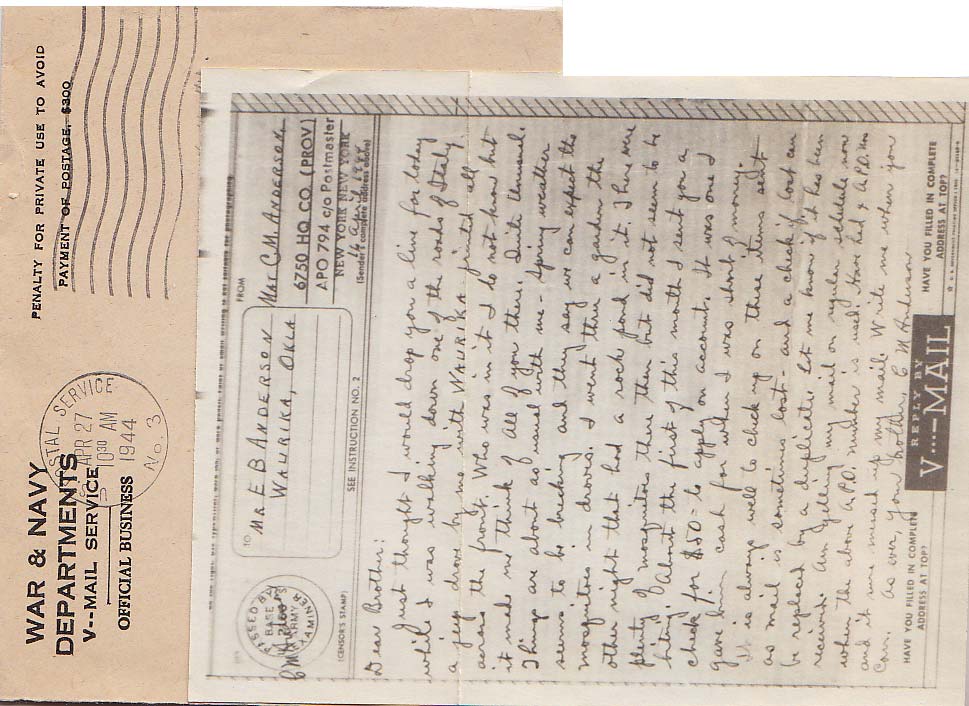 WAR & NAVY
DEPARTMENTS
V--MAIL SERVICE
OFFICIAL BUSINESS
POSTAL SERVICE
APR 27
10 30 AM
1944
No. 3
PENALTY FOR PRIVATE USE TO AVOID
PAYMENT OF POSTAGE, $300
PASSED BY
BASE
ARMY
EXAMINER
(CENSOR'S STAMP)
TO
MR E B ANDERSON
WAURIKA, OKLA
SEE INSTRUCTION NO. 2
FROM
Maj C. M. ANDERSON,
6750 HQ CO. (PROV)
APO 794 c/o Postmaster
NEW YORK NEW YORK
(Sender's complete address above)
Dear Brother:
Just thought I would drop you a line for today
while I was walking down one of the roads of Italy
a jeep drove by me with WAURIKA printed all
across the front. Who was in it I do not know but
it made me think of all of you there. Quite unusual.
Things are about as usual with me - Spring weather
seems to be breaking and they say we can expect the
mosquitoes in droves. I went thru a garden the
other night that had a rock pond in it. There were
plenty of mosquitoes there then but did not seem to be
biting. About the first of this month I sent you a
check for $50 - to apply on account. It was one I
gave him cash for when I was short of money.
It is always well to check up on these items sent
as mail is sometimes lost - and a check if lost can
be replaced by a duplicate. Let me know if it has been
received. Am getting my mail on regular schedule now
when the above A.P.O. number is used. Have had 4 A.P.O. Nos
and it sure mused up my mail. Write me when you
can. As ever, your brother, C M Anderson
HAVE YOU FILLED IN COMPLETE
ADDRESS AT TOP?
REPLY BY
V···—MAIL
HAVE YOU FILLED IN COMPLETE
ADDRESS AT TOP?